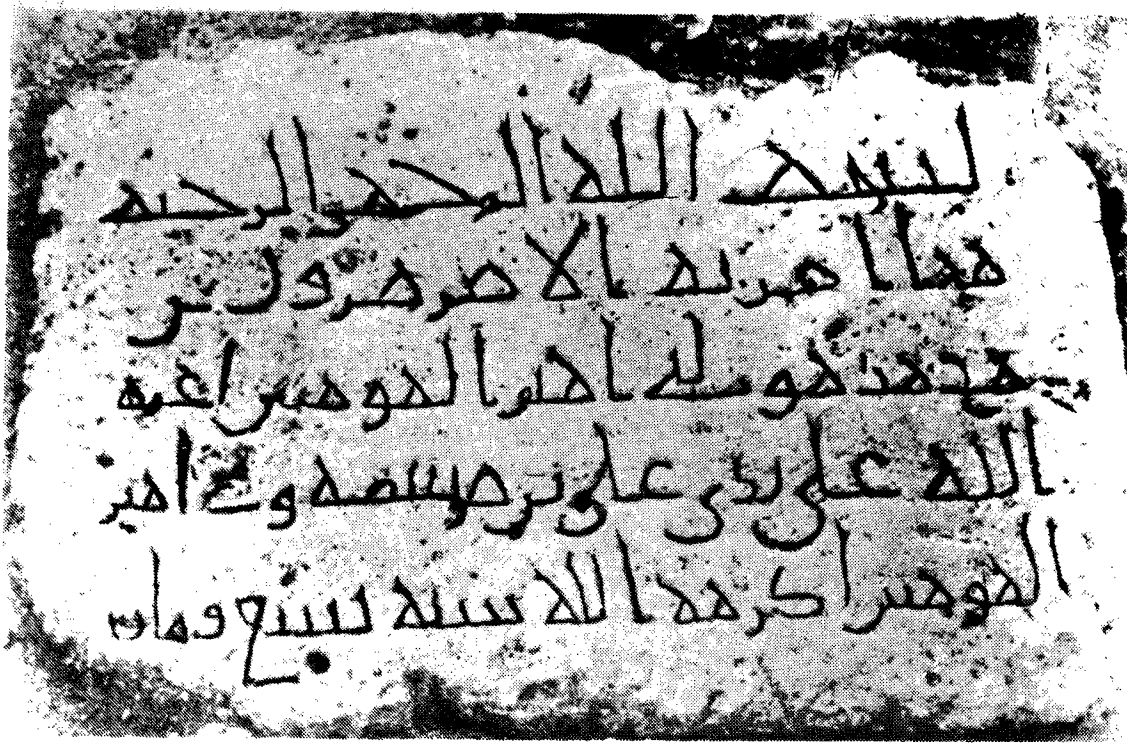 بسم الله الرحمن الرحيم
مما امر به الامير هرون بن
محمد مولى امير المومنين اعزه
الله على يدي علي بن امير
المومنين اكرمه الله سنة تسع ومايتين